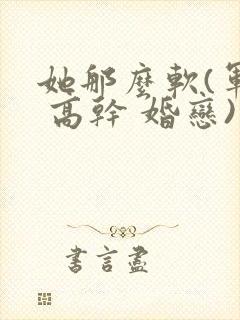 她那麼軟(軍
高幹 婚戀)
書言盡